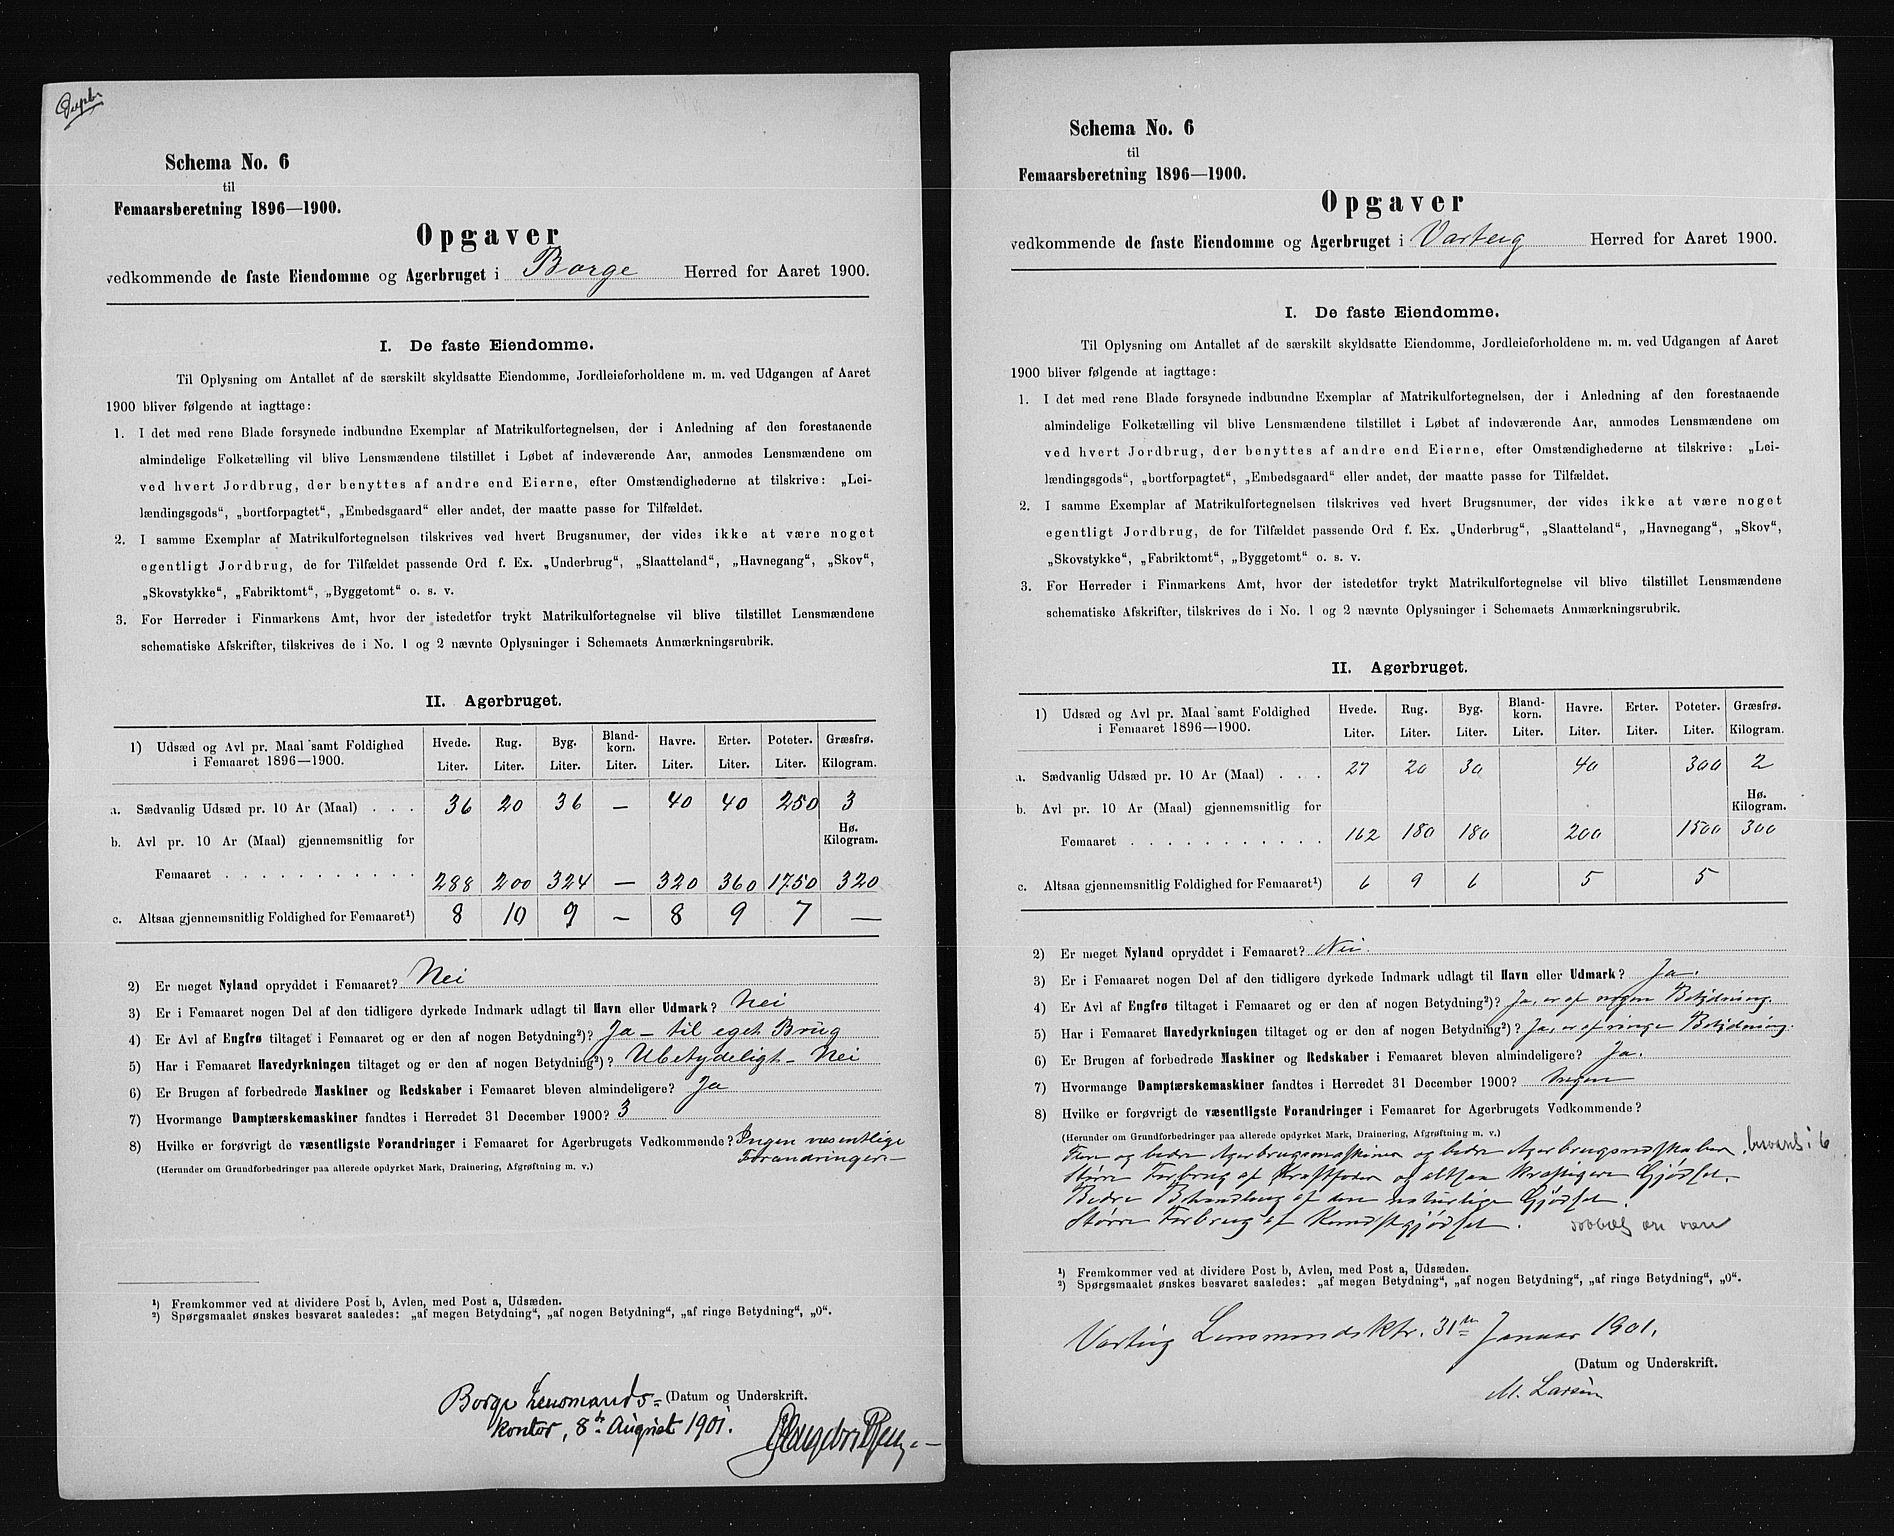 Schema No. 6
til
Femaarsberetning 1896—1900.
Opgaver
vedkommende de faste Eiendomme og Agerbruget i Borge Herred for Aaret 1900.
I. De faste Eiendomme.
Til Oplysning om Antallet af de særskilt skyldsatte Eiendomme, Jordleieforholdene m. m. ved Udgangen af Aaret
1900 bliver følgende at iagttage:
1. I det med rene Blade forsynede indbundne Exemplar af Matrikulfortegnelsen, der i Anledning af den forestaaende
almindelige Folketælling vil blive Lensmændene tilstillet i Løbet af indeværende Aar, anmodes Lensmændene om
ved hvert Jordbrug, der benyttes af andre end Eierne, efter Omstændighederne at tilskrive: „Lei-
lændingsgods“, „bortforpagtet“, „Embedsgaard“ eller andet, der maatte passe for Tilfældet.
2. I samme Exemplar af Matrikulfortegnelsen tilskrives ved hvert Brugsnumer, der vides ikke at være noget
egentligt Jordbrug, de for Tilfældet passende Ord f. Ex. „Underbrug“, „Slaatteland“, „Havnegang“, „Skov“,
„Skovstykke“, „Fabriktomt“, „Byggetomt“ o. s. v.
3. For Herreder i Finmarkens Amt, hvor der istedetfor trykt Matrikulfortegnelse vil blive tilstillet Lensmændene
schematiske Afskrifter, tilskrives de i No. 1 og 2 nævnte Oplysninger i Schemaets Anmærkningsrubrik.
II. Agerbruget.
1) Udsæd og Avl pr. Maal samt Foldighed
i Femaaret 1896—1900.
Hvede. Rug. Byg. Bland-korn. Havre. Erter. Poteter. Græsfrø.
Liter. Liter. Liter. Liter. Liter. Liter. Liter. Kilogram.
a. Sædvanlig Udsæd pr. 10 Ar (Maal) . . . 36 20 36 — 40 40 250 3
Hø.
Kilogram.
b. Avl pr. 10 Ar (Maal) gjennemsnitlig for
Femaaret . . . . . . . . . . . . 288 200 324 — 320 360 1750 320
c. Altsaa gjennemsnitlig Foldighed for Femaaret¹) 8 10 9 — 8 9 7 —
2) Er meget Nyland opryddet i Femaaret? Nei
3) Er i Femaaret nogen Del af den tidligere dyrkede Indmark udlagt til Havn eller Udmark? Nei
4) Er Avl af Engfrø tiltaget i Femaaret og er den af nogen Betydning²)? Ja – til eget Brug
5) Har i Femaaret Havedyrkningen tiltaget og er den af nogen Betydning²)? Ubetydeligt – Nei
6) Er Brugen af forbedrede Maskiner og Redskaber i Femaaret bleven almindeligere? Ja
7) Hvormange Damptærskemaskiner fandtes i Herredet 31 December 1900? 3
8) Hvilke er forøvrigt de væsentligste Forandringer i Femaaret for Agerbrugets Vedkommende? Ingen væsentlige
(Herunder om Grundforbedringer paa allerede opdyrket Mark, Drainering, Afgrøftning m. v.) Forandringer.
¹) Fremkommer ved at dividere Post b, Avlen, med Post a, Udsæden.
²) Spørgsmaalet ønskes besvaret saaledes: „af megen Betydning“, „af nogen Betydning“, „af ringe Betydning“, „0“.
Borge Lensmands- (Datum og Underskrift.
kontor, 8de August 1901.
Schema No. 6
til
Femaarsberetning 1896—1900.
Opgaver
vedkommende de faste Eiendomme og Agerbruget i Varteig Herred for Aaret 1900.
I. De faste Eiendomme.
Til Oplysning om Antallet af de særskilt skyldsatte Eiendomme, Jordleieforholdene m. m. ved Udgangen af Aaret
1900 bliver følgende at iagttage:
1. I det med rene Blade forsynede indbundne Exemplar af Matrikulfortegnelsen, der i Anledning af den forestaaende
almindelige Folketælling vil blive Lensmændene tilstillet i Løbet af indeværende Aar, anmodes Lensmændene om
ved hvert Jordbrug, der benyttes af andre end Eierne, efter Omstændighederne at tilskrive: „Lei-
lændingsgods“, „bortforpagtet“, „Embedsgaard“ eller andet, der maatte passe for Tilfældet.
2. I samme Exemplar af Matrikulfortegnelsen tilskrives ved hvert Brugsnumer, der vides ikke at være noget
egentligt Jordbrug, de for Tilfældet passende Ord f. Ex. „Underbrug“, „Slaatteland“, „Havnegang“, „Skov“,
„Skovstykke“, „Fabriktomt“, „Byggetomt“ o. s. v.
3. For Herreder i Finmarkens Amt, hvor der istedetfor trykt Matrikulfortegnelse vil blive tilstillet Lensmændene
schematiske Afskrifter, tilskrives de i No. 1 og 2 nævnte Oplysninger i Schemaets Anmærkningsrubrik.
II. Agerbruget.
1) Udsæd og Avl pr. Maal samt Foldighed
i Femaaret 1896—1900.
Hvede. Rug. Byg. Bland-korn. Havre. Erter. Poteter. Græsfrø.
Liter. Liter. Liter. Liter. Liter. Liter. Liter. Kilogram.
a. Sædvanlig Udsæd pr. 10 Ar (Maal) . . . 27 20 30 40 300 2
Hø.
Kilogram.
b. Avl pr. 10 Ar (Maal) gjennemsnitlig for
Femaaret . . . . . . . . . . . . 162 180 180 200 1500 300
c. Altsaa gjennemsnitlig Foldighed for Femaaret¹) 6 9 6 5 5
2) Er meget Nyland opryddet i Femaaret? Nei.
3) Er i Femaaret nogen Del af den tidligere dyrkede Indmark udlagt til Havn eller Udmark? Ja.
4) Er Avl af Engfrø tiltaget i Femaaret og er den af nogen Betydning²)? Ja, er af nogen Betydning.
5) Har i Femaaret Havedyrkningen tiltaget og er den af nogen Betydning²)? Ja, er af ringe Betydning.
6) Er Brugen af forbedrede Maskiner og Redskaber i Femaaret bleven almindeligere? Ja.
7) Hvormange Damptærskemaskiner fandtes i Herredet 31 December 1900? Ingen
8) Hvilke er forøvrigt de væsentligste Forandringer i Femaaret for Agerbrugets Vedkommende?
(Herunder om Grundforbedringer paa allerede opdyrket Mark, Drainering, Afgrøftning m. v.)
og bedre Agerbrugsmaskiner og bedre Agerbrugsredskaber. i 6
Større Forbrug af Kraftfoder og altsaa kraftigere Gjødsel.
Bedre Behandling af den naturlige Gjødsel.
Større Forbrug af Kunstgjødsel.
¹) Fremkommer ved at dividere Post b, Avlen, med Post a, Udsæden.
²) Spørgsmaalet ønskes besvaret saaledes: „af megen Betydning“, „af nogen Betydning“, „af ringe Betydning“, „0“.
Varteig Lensmandsktr. 31te Januar 1901.
(Datum og Underskrift.
M. Larsen